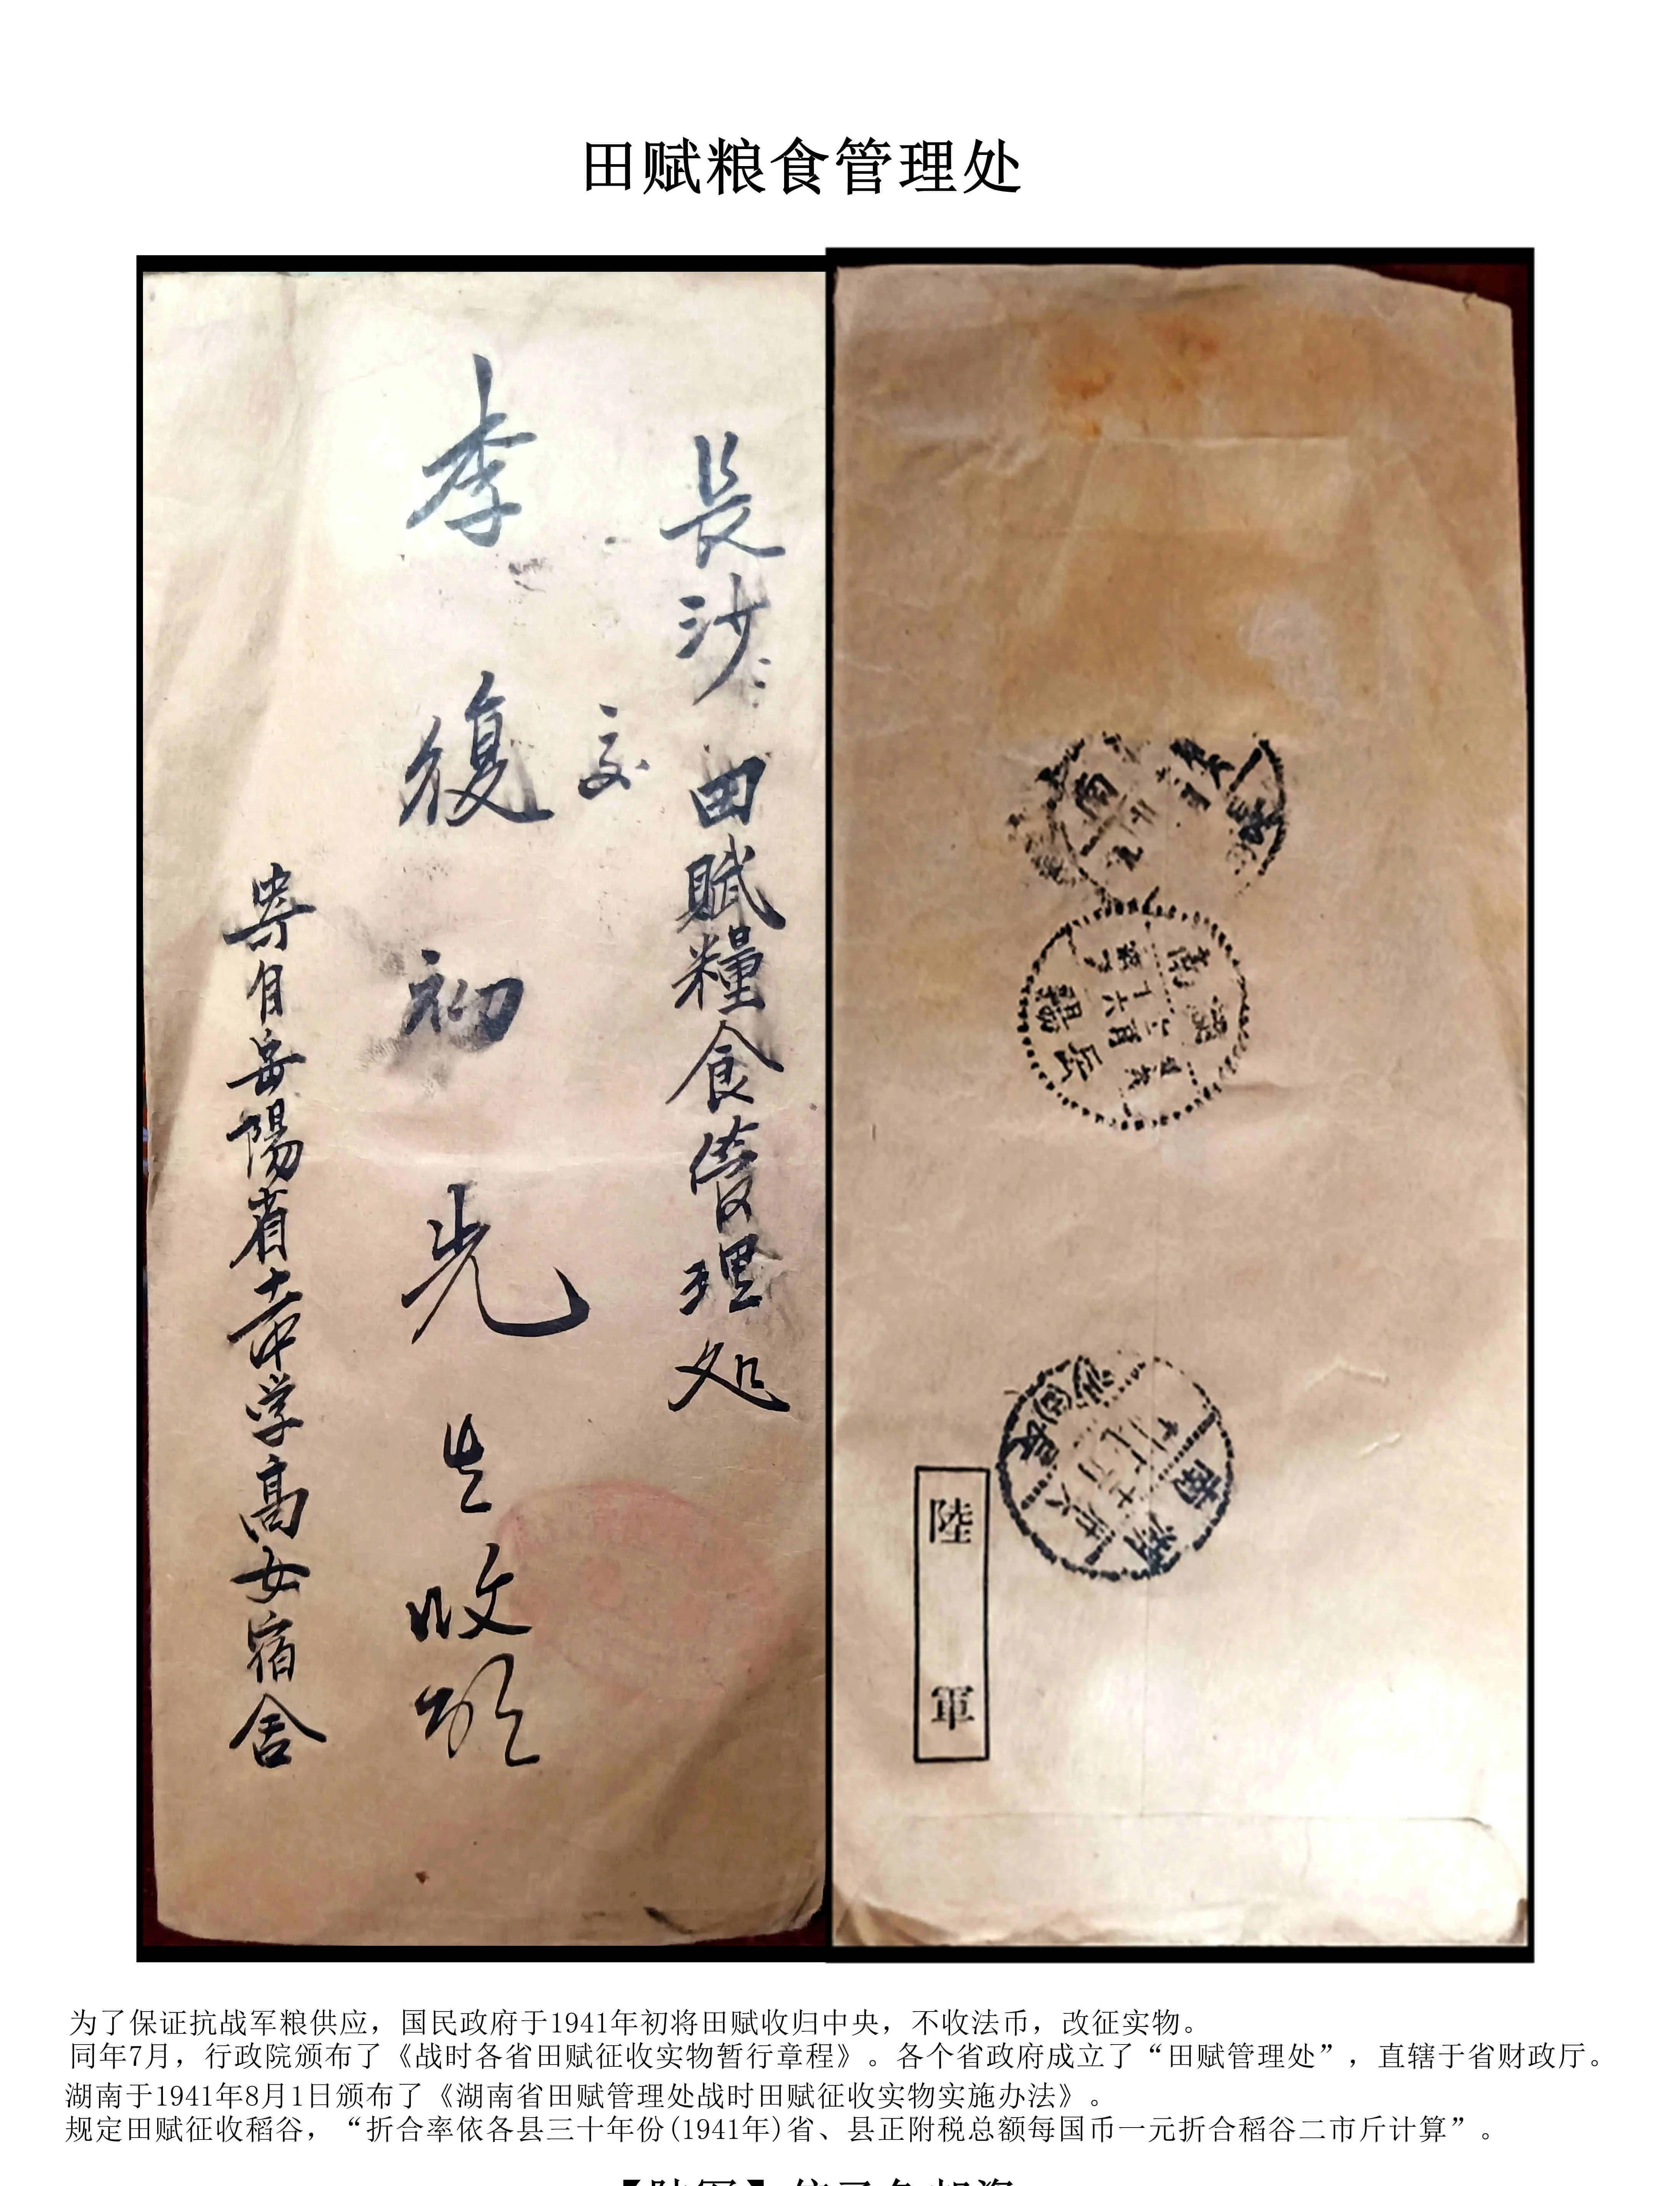 田赋粮食管理处
長沙田賦糧食管理処
交
李復初先生收啟
寄自岳陽省十一中学高女宿舍
湖南
岳陽
湖南
陸軍
为了保证抗战军粮供应，国民政府于1941年初将田赋收归中央，不收法币，改征实物。
同年7月，行政院颁布了《战时各省田赋征收实物暂行章程》。各个省政府成立了“田赋管理处”，直辖于省财政厅。
湖南于1941年8月1日颁布了《湖南省田赋管理处战时田赋征收实物实施办法》。
规定田赋征收稻谷，“折合率依各县三十年份(1941年)省、县正附税总额每国币一元折合稻谷二市斤计算”。